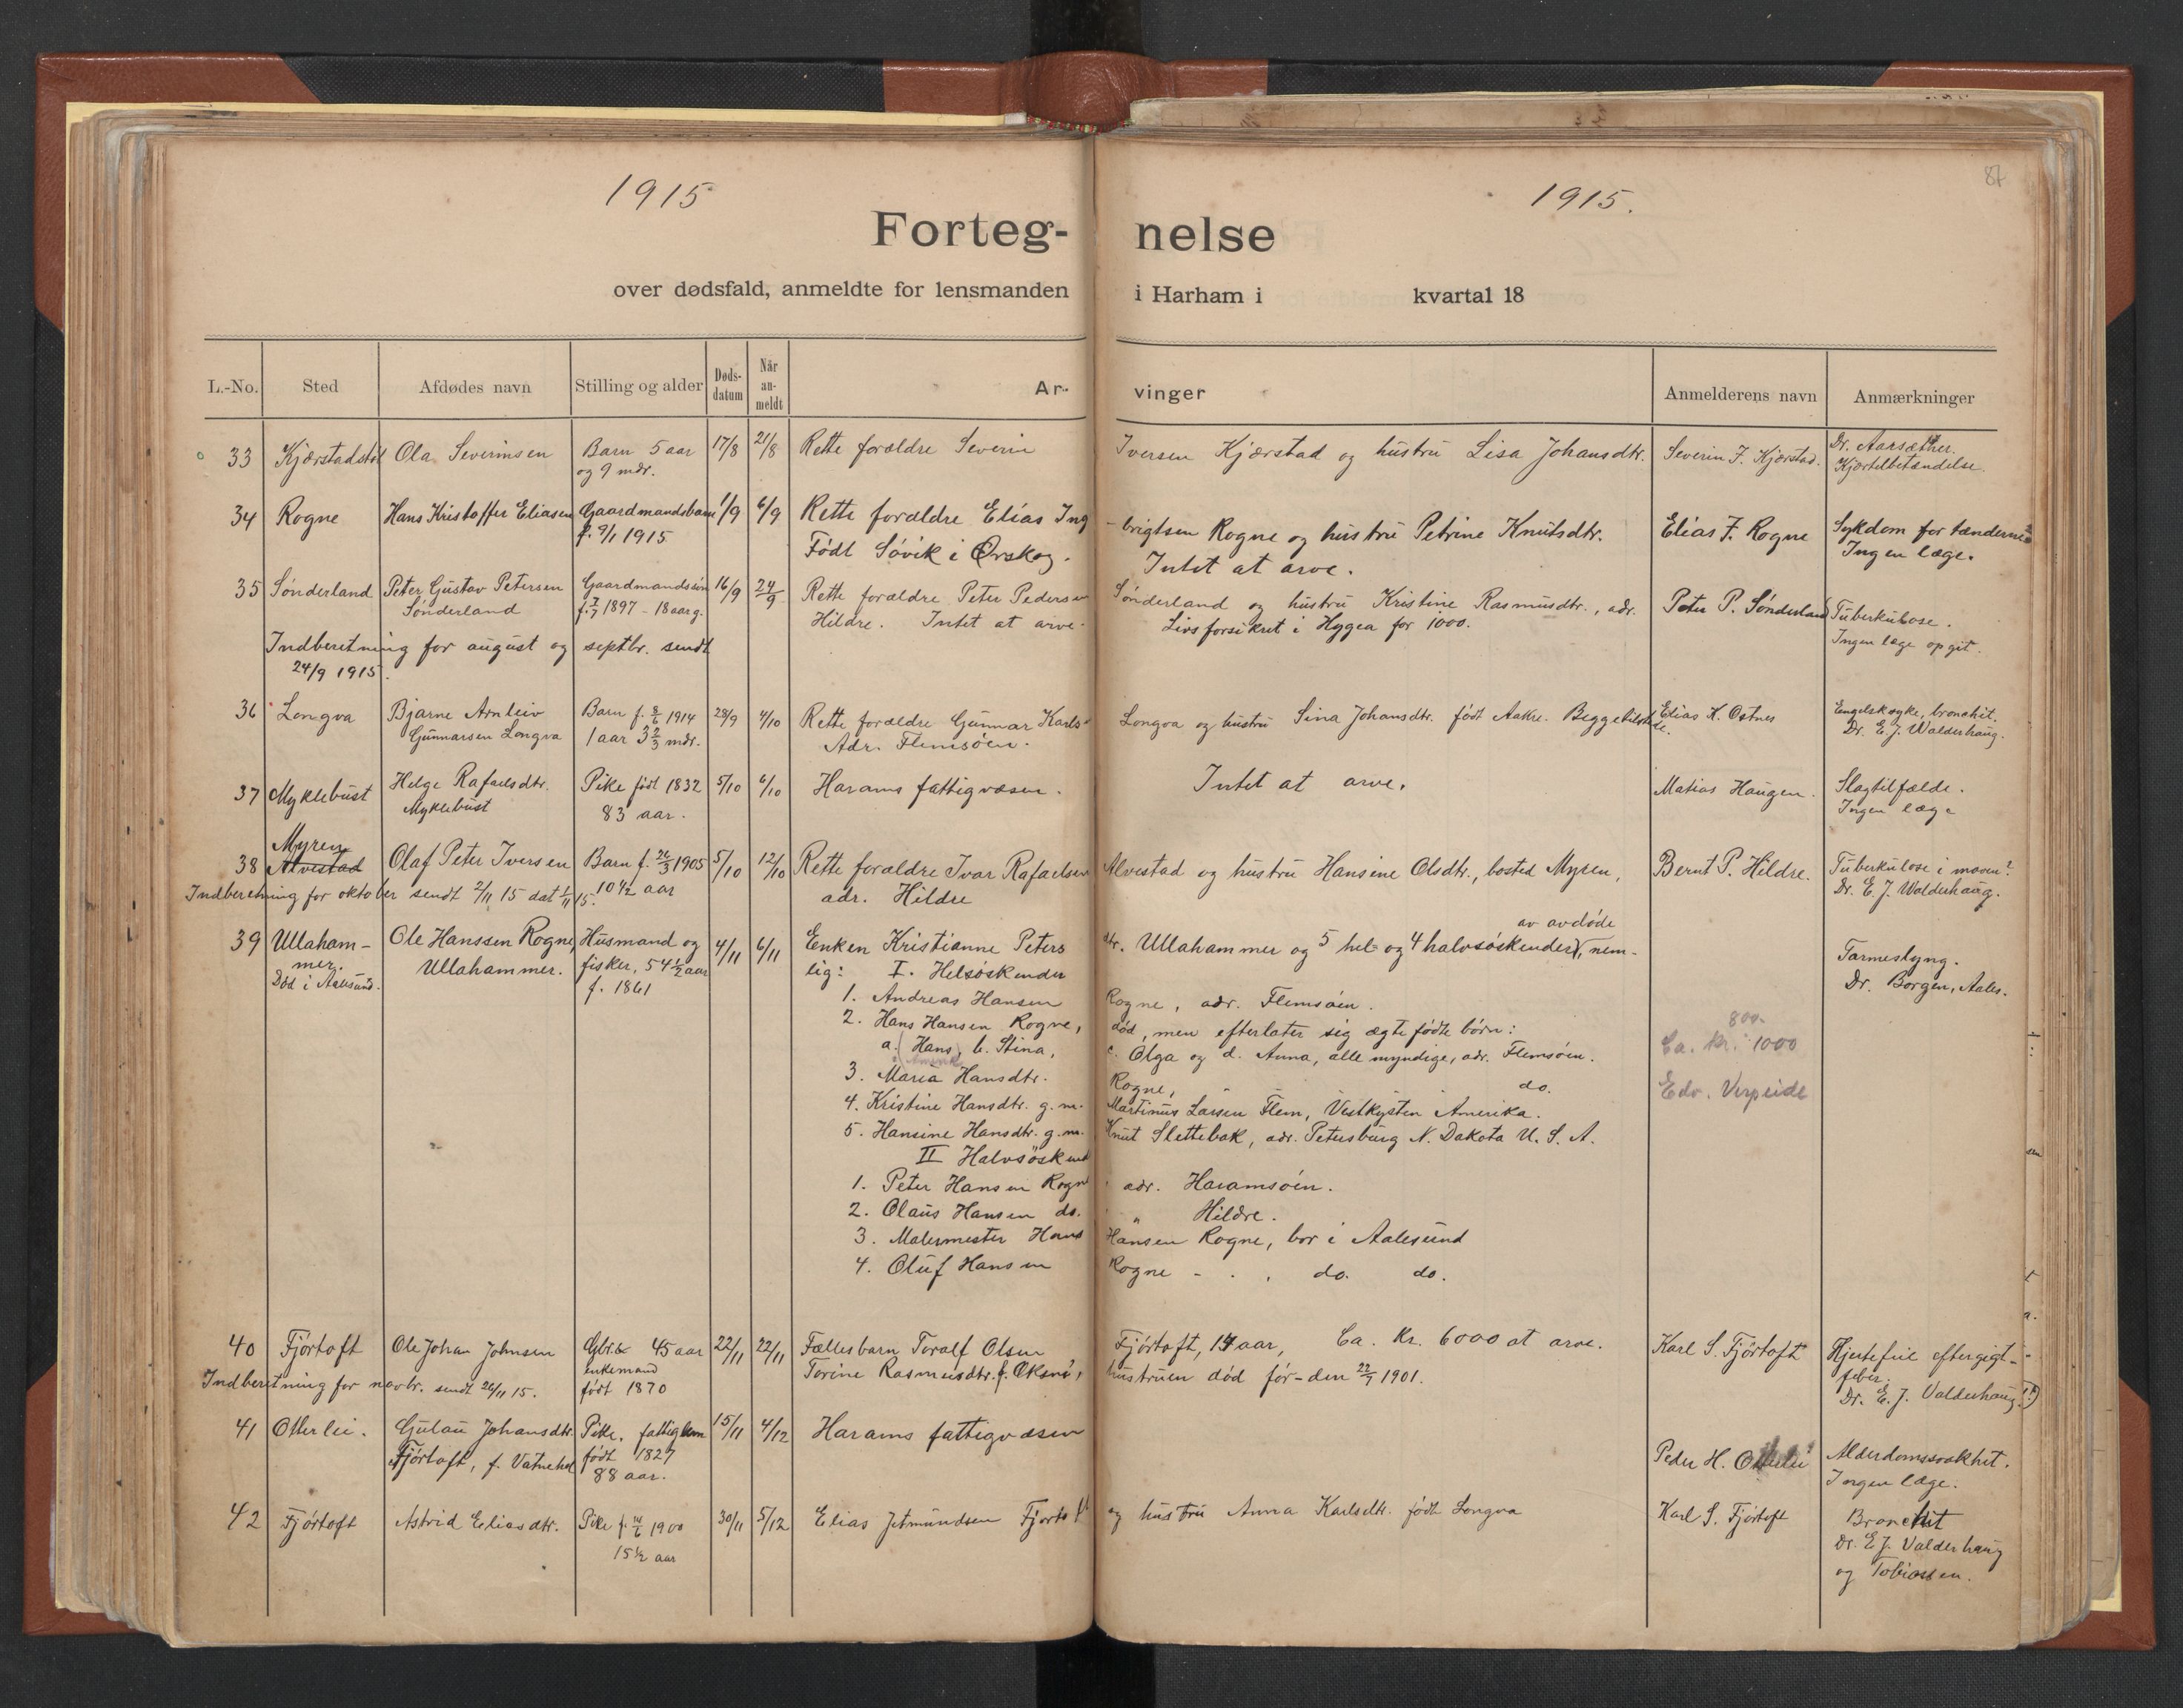 1915
1915.
87
Forteg-
nelse
over dødsfald, anmeldte for lensmanden
i Harham i kvartal 18
L.-No. Sted Afdødes navn Stilling og alder Døds-datum Når an-meldt Ar-
vinger Anmelderens navn Anmærkninger
33 Kjærstadstøl Ola Severinsen Barn 5 aar 17/8 21/8 Rette forældre Severin Iversen Kjærstad og hustru Lisa Johansdtr. Severin I. Kjærstad. Dr. Aarsæther.
og 9 mdr. Kjærtelbetændelse.
34 Rogne Hans Kristoffer Eliasen Gaardmandsbarn 1/9 6/9 Rette forældre Elias Ing-brigtsen Rogne og hustru Petrine Knutsdtr. Elias I. Rogne Sykdom for tænderne?
f. 9/1 1915 Født Søvik i Ørskog. Intet at arve. Ingen læge.
35 Sønderland Peter Gustav Petersen Gaardmandssøn 16/9 24/9 Rette forældre Peter Pedersen Sønderland og hustru Kristine Rasmusdtr., adr. Peter P. Sønderland Tuberkulose.
Sønderland f. 7/7 1897 - 18 aar g. Hildre. Intet at arve. Livsforsikret i Hygea for 1000. Ingen læge opgit.
Indberetning for august og septbr. sendt
24/9 1915.
36 Longva Bjarne Arnleiv Barn f. 8/6 1914 28/9 4/10 Rette forældre Gunnar Karls- Longva og hustru Sina Johansdtr. født Aakre. Begge tilstede. Elias K. Ostnes Engelsksyke, bronchit.
Gunnarsen Longva 1 aar 3 2/3 mdr. Adr. Flemsøen. Dr. E. J. Walderhaug.
37 Myklebust Helge Rafaelsdtr. Pike født 1832 5/10 6/10 Harams fattigvæsen. Intet at arve. Matias Haugen. Slagtilfælde.
Myklebust 83 aar. Ingen læge
Myren
38 Alvestad Olaf Peter Iversen Barn f. 26/3 1905 5/10 12/10 Rette forældre Ivar Rafaelsen Alvestad og hustru Hansine Olsdtr., bosted Myren, Bernt P. Hildre. Tuberkulose i maven?
10 1/2 aar adr. Hildre Dr. E. J. Walderhaug.
Indberetning for oktober sendt 2/11 15 dat 1/11 15.
av avdøde
39 Ullaham- Ole Hanssen Rogne, Husmand og 4/11 6/11 Enken Kristianne Peters dtr. Ullahammer og 5 hel- og 4 halvsøskender, nem-
mer. Ullahammer. fisker, 54 1/2 aar lig: I. Helsøskender Tarmeslyng.
Død i Aalesund. f. 1861 Dr. Borgen, Aales.
1. Andreas Hansen Rogne, adr. Flemsøen.
2. Hans Hansen Rogne, død, men efterlater sig ægtefødte børn: 800.-
a. Hans, b. Stina, c. Olga og d. Anna, alle myndige, adr. Flemsøen. Ca. kr. 1000
3. Maria Hansdtr. Rogne, " do. Edv. Verpeide
4. Kristine Hansdtr. g. m. Martinus Larsen Flem, Vestkysten Amerika.
5. Hansine Hansdtr. g. m. Knut Slettebak, adr. Petersburg N. Dakota U. S. A.
II Halvsøskend
1. Peter Hansen Rogne adr. Haramsøen.
2. Olaus Hansen do. " Hildre.
3. Malermester Hans Hansen Rogne, bor i Aalesund
4. Oluf Hansen Rogne - . , do. do.
40 Fjørtoft Ole Johan Johnsen Gbr. 45 aar 22/11 22/11 Fællesbarn Toralf Olsen Fjørtoft, 14 aar, Ca. Kr. 6000 at arve. Karl S. Fjørtoft Hjertefeil efter gigt-
enkemand Torine Rasmusdtr. f. Øksnes, hustruen død før - den 22/7 1901. feber.
Indberetning for novbr. sendt 26/11 15. født 1870 Dr. E. J. Valderhaug (?)
41 Otterlei. Gulau Johansdtr. Pike, fattiglem 15/11 4/12 Harams fattigvæsen
Fjørtoft, f. Vatnehol født 1827 Peder H. Otterlei Alderdomssvakhet.
88 aar. Ingen læge.
42 Fjørtoft Astrid Eliasdtr. Pike f. 14/6 1900 30/11 5/12 Elias Jetmundsen Fjørtoft og hustru Anna Karlsdtr. født Longva Karl S. Fjørtoft Bronchit
15 1/2 aar Dr. E. J. Valderhaug
og Tobiassen.